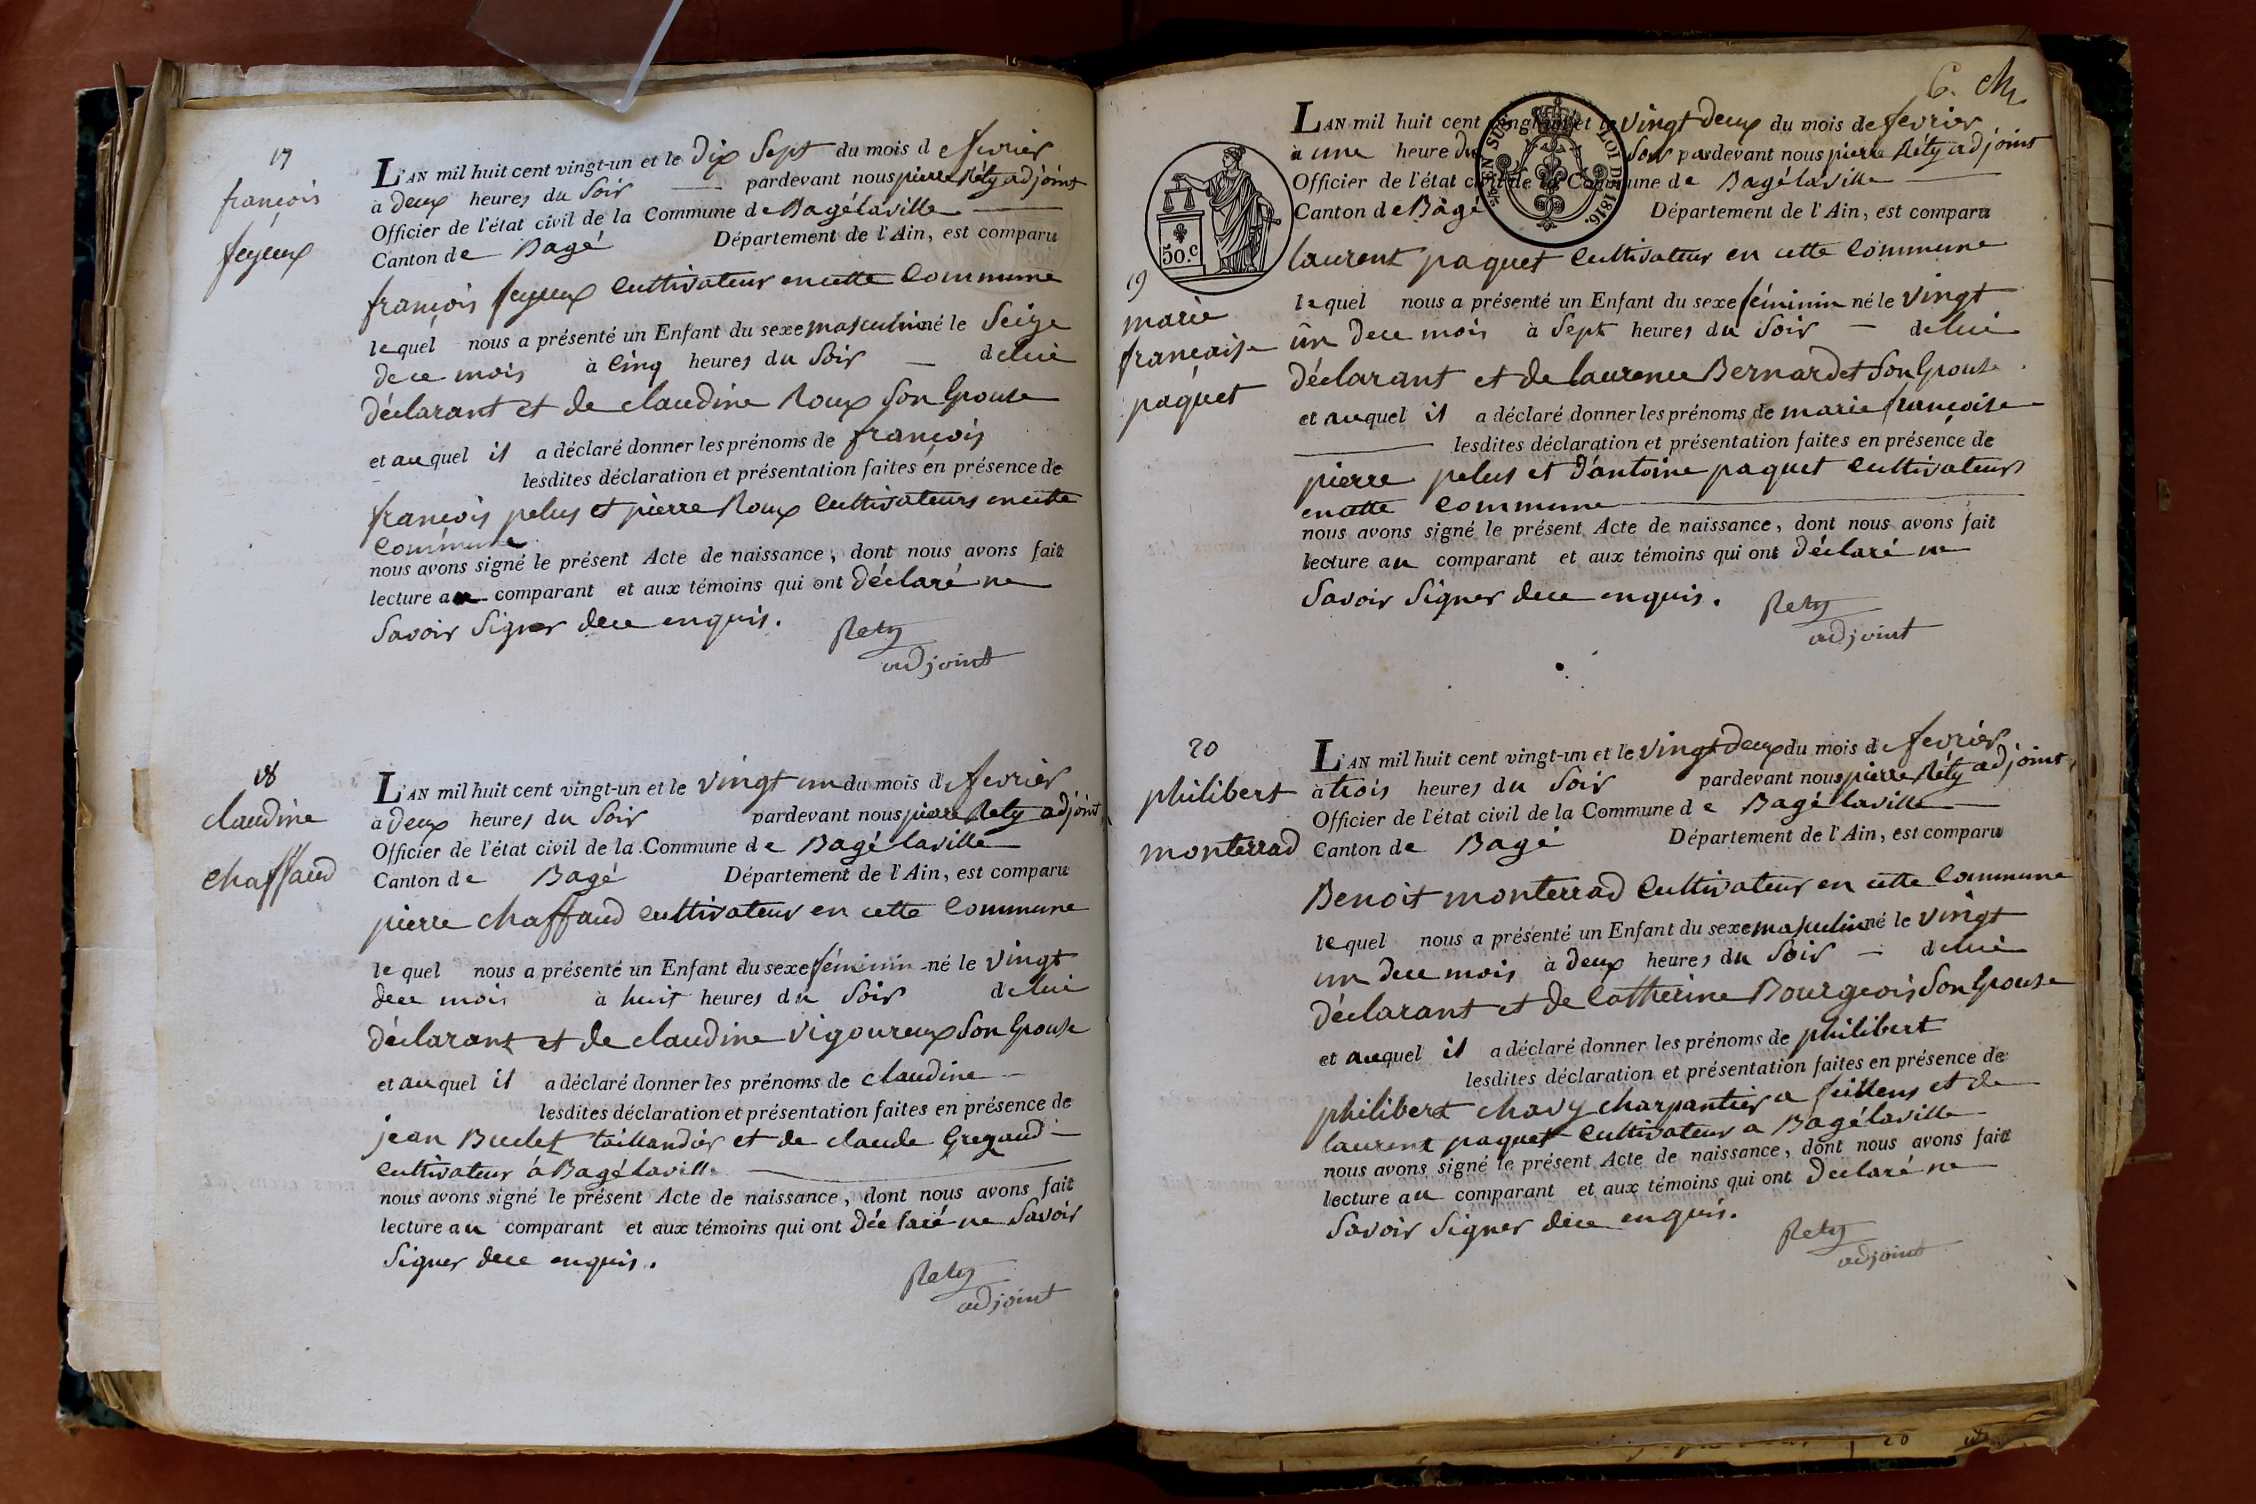 17
françois
feyeux
L'AN mil huit cent vingt-un et le dix Sept du mois de fevrier
à deux heures du Soir pardevant nous pierre Réty adjoint
Officier de l'état civil de la Commune de Bagélaville
Canton de Bagé Département de l'Ain, est comparu
françois feyeux Cultivateur en cette Commune
lequel nous a présenté un Enfant du sexe masculin né le Seize
de ce mois à Cinq heures du Soir de lui
déclarant et de claudine Roux Son Epouse
et auquel il a déclaré donner les prénoms de françois
lesdites déclaration et présentation faites en présence de
françois pelus et pierre Roux Cultivateurs en cette
Commune
nous avons signé le présent Acte de naissance, dont nous avons fait
lecture au comparant et aux témoins qui ont déclaré ne
Savoir Signer de ce enquis.
Rety
adjoint
18
claudine
chaffaud
L'AN mil huit cent vingt-un et le vingt un du mois de fevrier
à deux heures du Soir pardevant nous pierre Rety adjoint
Officier de l'état civil de la Commune de Bagélaville
Canton de Bagé Département de l'Ain, est comparu
pierre chaffaud Cultivateur en cette Commune
lequel nous a présenté un Enfant du sexe féminin né le vingt
de ce mois à huit heures du Soir de lui
déclarant et de claudine vigoureux Son Epouse
et auquel il a déclaré donner les prénoms de claudine
lesdites déclaration et présentation faites en présence de
jean Buclet taillandier et de claude Gregaud
Cultivateur à Bagélaville
nous avons signé le présent Acte de naissance, dont nous avons fait
lecture au comparant et aux témoins qui ont déclaré ne Savoir
Signer de ce enquis.
Rety
adjoint
6.
EN SUS LOI DE 1816.
50.c
19
marie
françoise
paquet
L'AN mil huit cent vingt-un et le vingt deux du mois de fevrier
à une heure du Soir pardevant nous pierre Réty adjoint
Officier de l'état civil de la Commune de Bagélaville
Canton de Bagé Département de l'Ain, est comparu
laurent paquet Cultivateur en cette Commune
lequel nous a présenté un Enfant du sexe féminin né le vingt
un de ce mois à Sept heures du Soir de lui
déclarant et de laurence Bernardet Son Epouse
et auquel il a déclaré donner les prénoms de marie françoise
lesdites déclaration et présentation faites en présence de
pierre pelus et d'antoine paquet Cultivateurs
en cette Commune
nous avons signé le présent Acte de naissance, dont nous avons fait
lecture au comparant et aux témoins qui ont déclaré ne
Savoir Signer de ce enquis.
Rety
adjoint
20
philibert
monterrad
L'AN mil huit cent vingt-un et le vingt deux du mois de fevrier
à trois heures du Soir pardevant nous pierre Réty adjoint
Officier de l'état civil de la Commune de Bagélaville
Canton de Bagé Département de l'Ain, est comparu
Benoit monterrad Cultivateur en cette Commune
lequel nous a présenté un Enfant du sexe masculin né le vingt
un de ce mois à deux heures du Soir de lui
déclarant et de Catherine Bourgeois Son Epouse
et auquel il a déclaré donner les prénoms de philibert
lesdites déclaration et présentation faites en présence de
philibert chavy charpantier a feillens et de
laurent paquet Cultivateur a Bagélaville
nous avons signé le présent Acte de naissance, dont nous avons fait
lecture au comparant et aux témoins qui ont déclaré ne
Savoir Signer de ce enquis.
Rety
adjoint